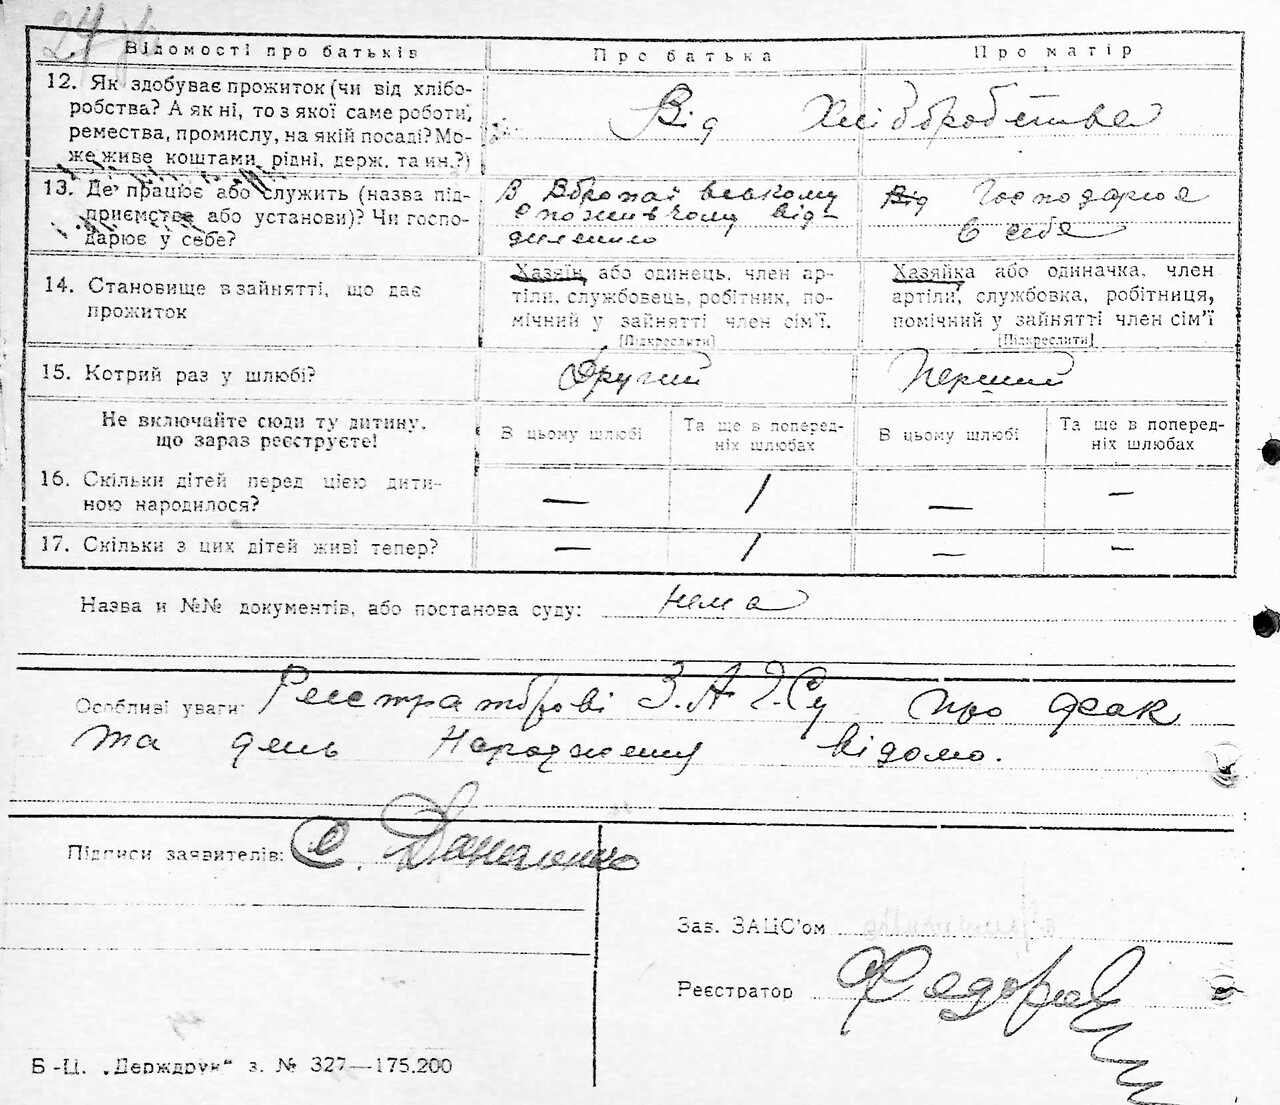 Відомості про батьків Про батька Про матір
12. Як здобуває прожиток (чи від хлібо-
робства? А як ні, то з якої саме роботи,
ремества, промислу, на якій посаді? Мо-
же живе коштами рідні, держ. та ин.?)
Від Хліборобства
13. Де працює або служить (назва під-
приємства або установи)? Чи госпо-
дарює у себе?
В
споживчому від-
діленню
Від Господарює
в себе
14. Становище в зайнятті, що дає
прожиток
Хазяїн або одинець, член ар-
тіли, службовець, робітник, по-
мічний у зайнятті член сім'ї.
[Підкреслити]
Хазяйка або одиначка, член
артіли, службовка, робітниця,
помічний у зайнятті член сім'ї
[Підкреслити]
15. Котрий раз у шлюбі? Другий Перший
Не включайте сюди ту дитину,
що зараз реєструєте!
В цьому шлюбі
Та ще в поперед-
ніх шлюбах
В цьому шлюбі
Та ще в поперед-
ніх шлюбах
16. Скільки дітей перед цією дити-
ною народилося?
— 1 — —
17. Скільки з цих дітей живі тепер? — 1 — —
Назва и №№ документів, або постанова суду: нема
Особливі уваги: Реєстраторові З.А.Г.Су про
та день народження відомо.
Підписи заявителів: С. Даниленко
Зав. ЗАЦС'ом
Реєстратор
Б-Ц. „Держдрук“ з. № 327—175.200